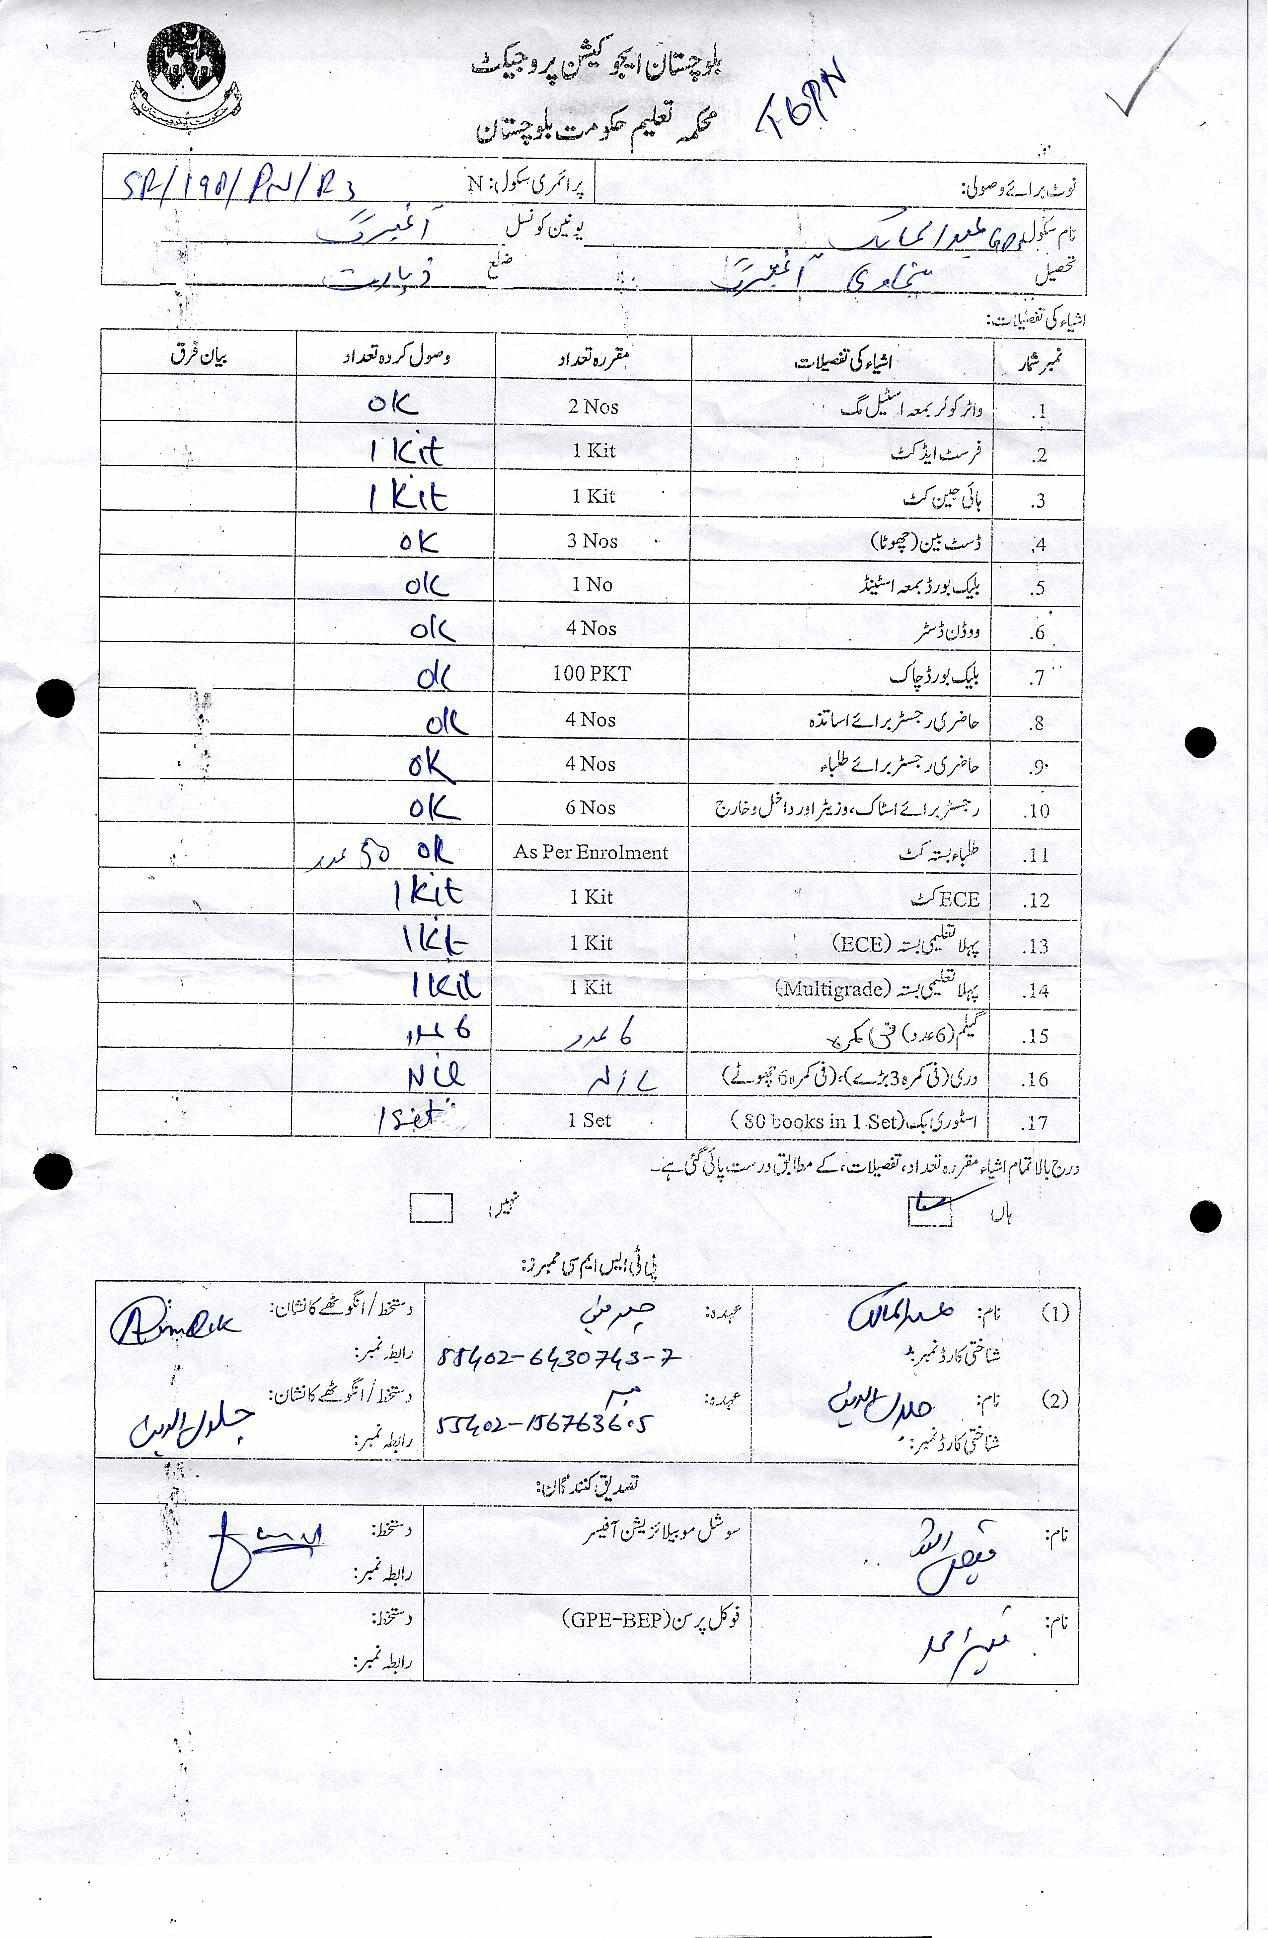 بلوچستان ایجوکیشن پروجیکٹ
محکمہ تعلیم حکومت بلوچستان
TGPN
نوٹ برائے وصولی: پرائمری سکول: N SR/198/PN/R3
نام سکول عبدالمالک یونین کونسل اغبرگ
تحصیل سنجاوی اغبرگ ضلع زیارت
اشیاء کی تفصیلات:
نمبر شمار اشیاء کی تفصیلات مقررہ تعداد وصول کردہ تعداد بیان فرق
1. واٹر کولر بمعہ اسٹیل مگ 2 Nos OK
2. فرسٹ ایڈ کٹ 1 Kit 1 Kit
3. ہائی جین کٹ 1 Kit 1 Kit
4. ڈسٹ بین (چھوٹا) 3 Nos OK
5. بلیک بورڈ بمعہ اسٹینڈ 1 No OK
6. ووڈن ڈسٹر 4 Nos OK
7. بلیک بورڈ چاک 100 PKT OK
8. حاضری رجسٹر برائے اساتذہ 4 Nos OK
9. حاضری رجسٹر برائے طلباء 4 Nos OK
10. رجسٹر برائے اسٹاک، وزیٹر اور داخل و خارج 6 Nos OK
11. طلباء بستہ کٹ As Per Enrolment OK 50 عدد
12. ECE کٹ 1 Kit 1 Kit
13. پہلا تعلیمی بستہ (ECE) 1 Kit 1 Kit
14. پہلا تعلیمی بستہ (Multigrade) 1 Kit 1 Kit
15. گیلم (6 عدد) فی کمرہ 6 عدد 6 عدد
16. دری (فی کمرہ 3 بڑے)، (فی کمرہ 6 چھوٹے) NIL Nil
17. اسٹوری بک (80 books in 1 Set) 1 Set 1 Set
درج بالا تمام اشیاء مقررہ تعداد، تفصیلات، کے مطابق درست پائی گئی ہے۔
ہاں نہیں:
پی ٹی ایس ایم سی ممبرز:
(1) نام: عبدالمالک عہدہ: چیرمین دستخط/انگوٹھے کا نشان:
شناختی کارڈ نمبر: 55402-6430743-7 رابطہ نمبر:
(2) نام: جلال الدین عہدہ: ممبر دستخط/انگوٹھے کا نشان: جلال الدین
شناختی کارڈ نمبر: 55402-156763605 رابطہ نمبر:
تصدیق کنندگان:
نام: فیض اللہ سوشل موبیلائزیشن آفیسر دستخط:
رابطہ نمبر:
نام: احمد فوکل پرسن (GPE-BEP) دستخط:
رابطہ نمبر: